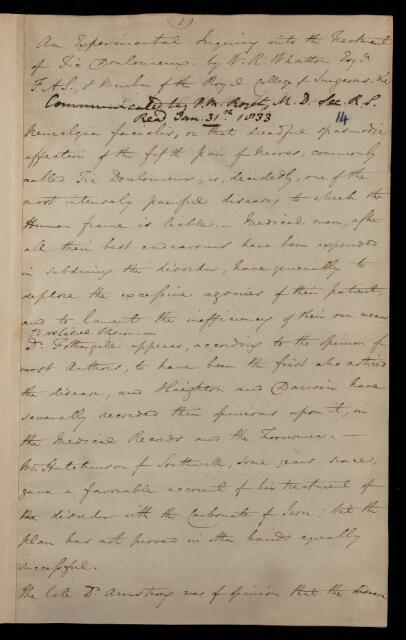 (1)
An Experimental Inquiry into the Treatment
of Tic Douloureux. by W. R. Whatton Esqre.
F.A.S., & Member of the Royal College of Surgeons, &c.
Communicated by P. M. Roget, M. D. Sec. R. S.
Read Jan. 31st 1833
14
Neuralgia facialis, or that dreadful spasmodic
affection of the fifth pair of Nerves, commonly
called Tic Douloureux, is, decidedly, one of the
most intensely painful diseases to which the
Human frame is liable. — Medical men, after
all their best endeavours have been expended
in subduing the disorder, have generally to
deplore the excessive agonies of their patient,
and to lament the inefficiency of their own means
to relieve them. —
Dr. Fothergill appears, according to the opinion of
most Authors, to have been the first who noticed
the disease, and Haighton and Darwin have
severally recorded their opinions upon it, in
the Medical Records and the Zoonomia. —
Mr. Hutchinson of Southwell, some years since,
gave a favorable account of his treatment of
the disorder with the Carbonate of Iron; but the
plan has not proved in other hands equally
successful.
The late Dr. Armstrong was of opinion that the disease